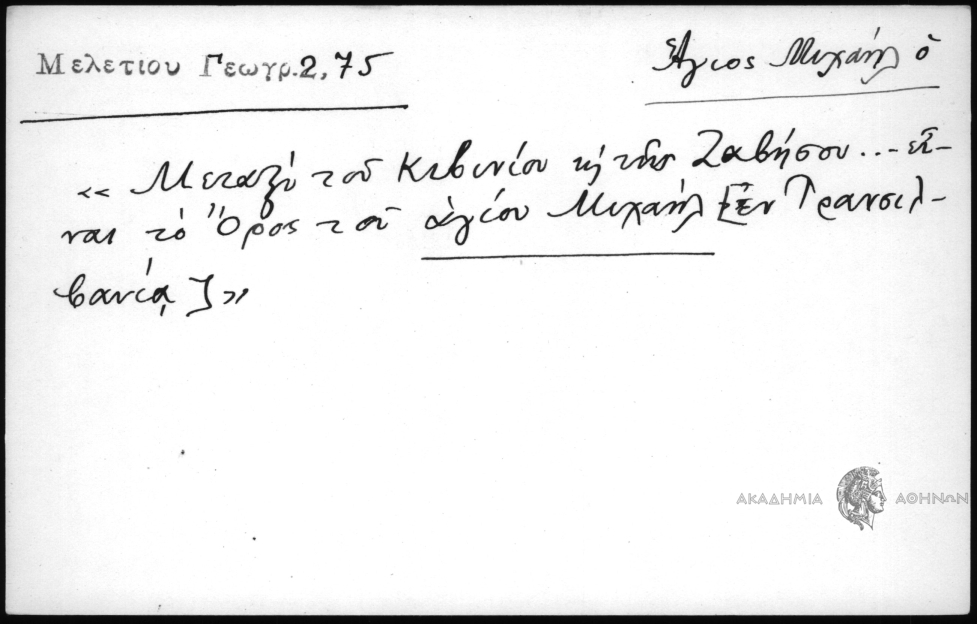 Μελετίου Γεωγρ.2,75
Ἅγιος Μιχαήλ ὁ
« Μεταξὺ τοῦ Κιβινίου κ̀ τῆς Ζαβήσου ... εἶ-
ναι τὸ Ὄρος τοῦ ἁγίου Μιχαήλ [ἐν Τρανσιλ-
βανίᾳ] »
ΑΚΑΔΗΜΙΑ ΑΘΗΝΩΝ